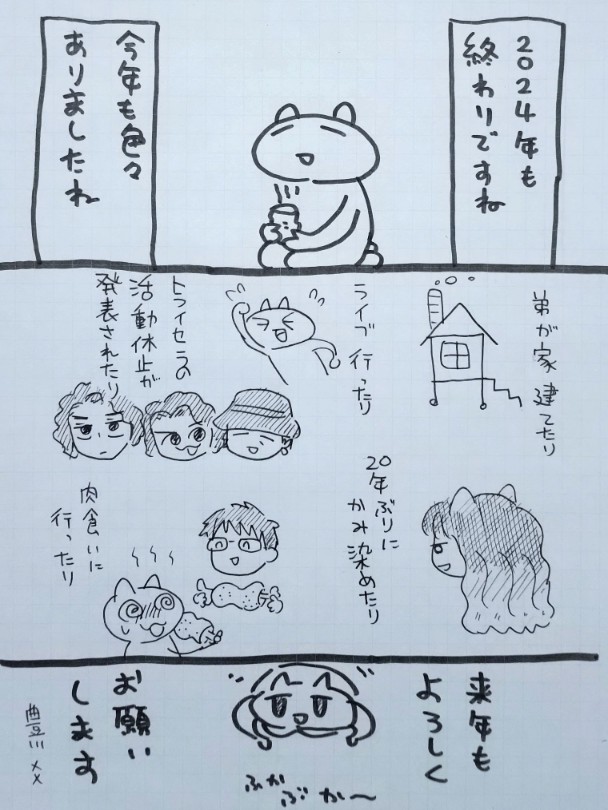 2024年も
終わりですね
今年も色々
ありましたね
弟が家 建てたり
ライブ 行ったり
トライセラの
活動休止が
発表されたり
20年ぶりに
かみ染めたり
肉食いに
行ったり
来年も
よろしく
お願い
します
ふか
ぶか〜
豊川 ××